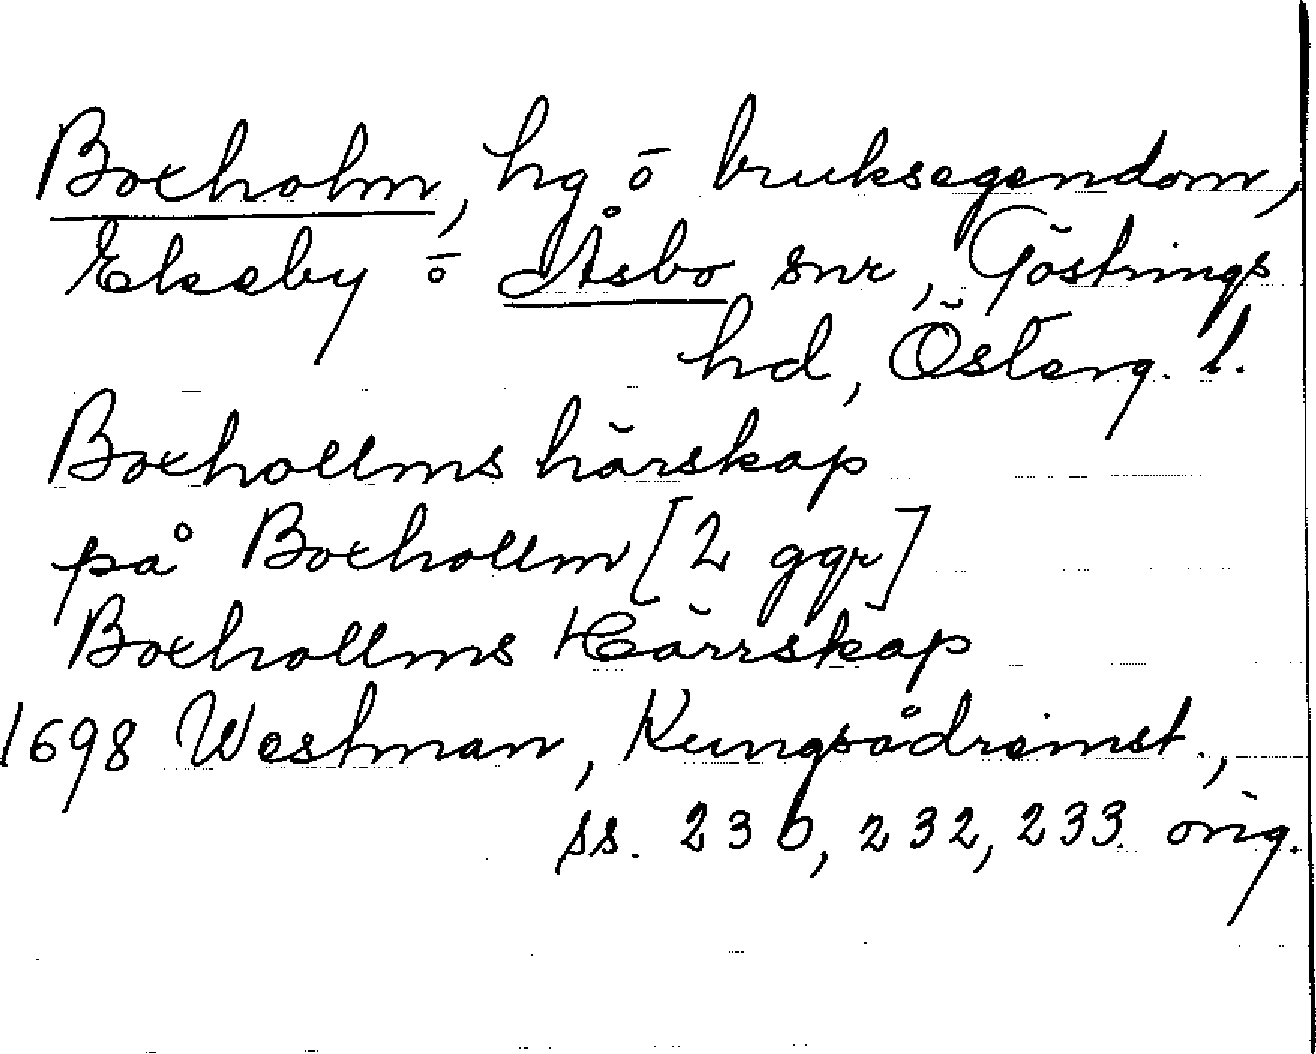 Boxholm, hg ō bruksegendom,
Ekeby ō Åsbo snr, Göstrings
hd, Österg. l.
Boxhollms härskap
på Boxhollm [2 ggr]
Boxhollms Härrskap
1698 Westman, Kungsådremst.,
ss. 230, 232, 233. orig.